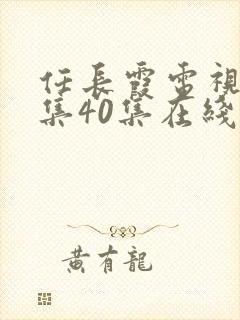 任長霞電視
集40集在綫
黃有龍